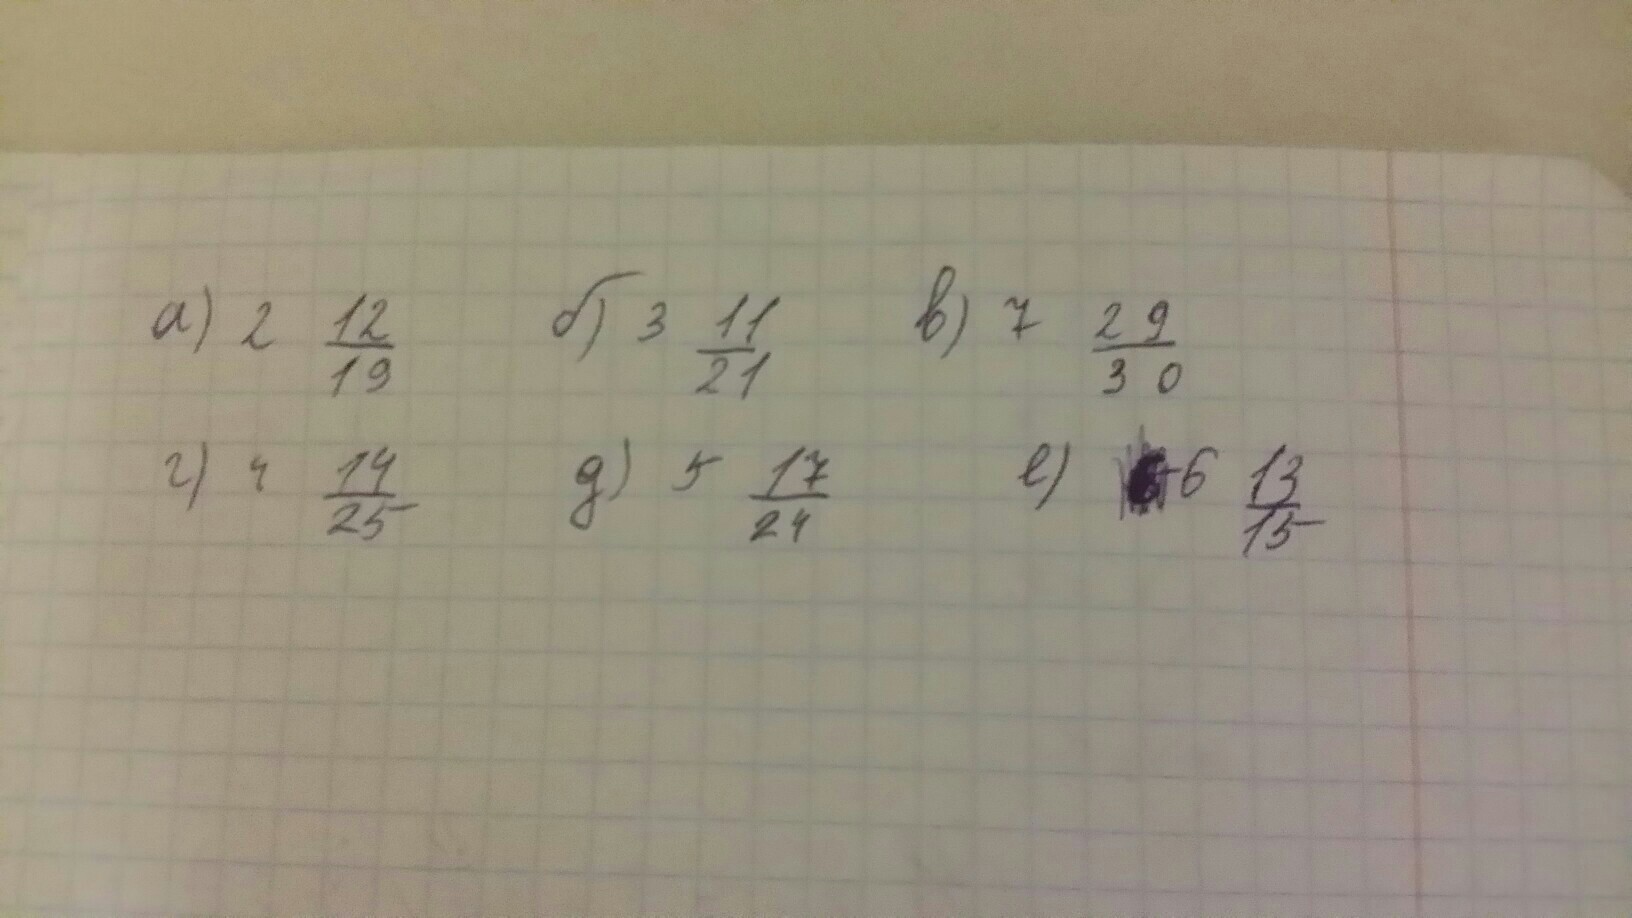 а) 2 12/19 б) 3 11/21 в) 7 29/30
г) 4 14/25 д) 5 17/24 е) 6 13/15